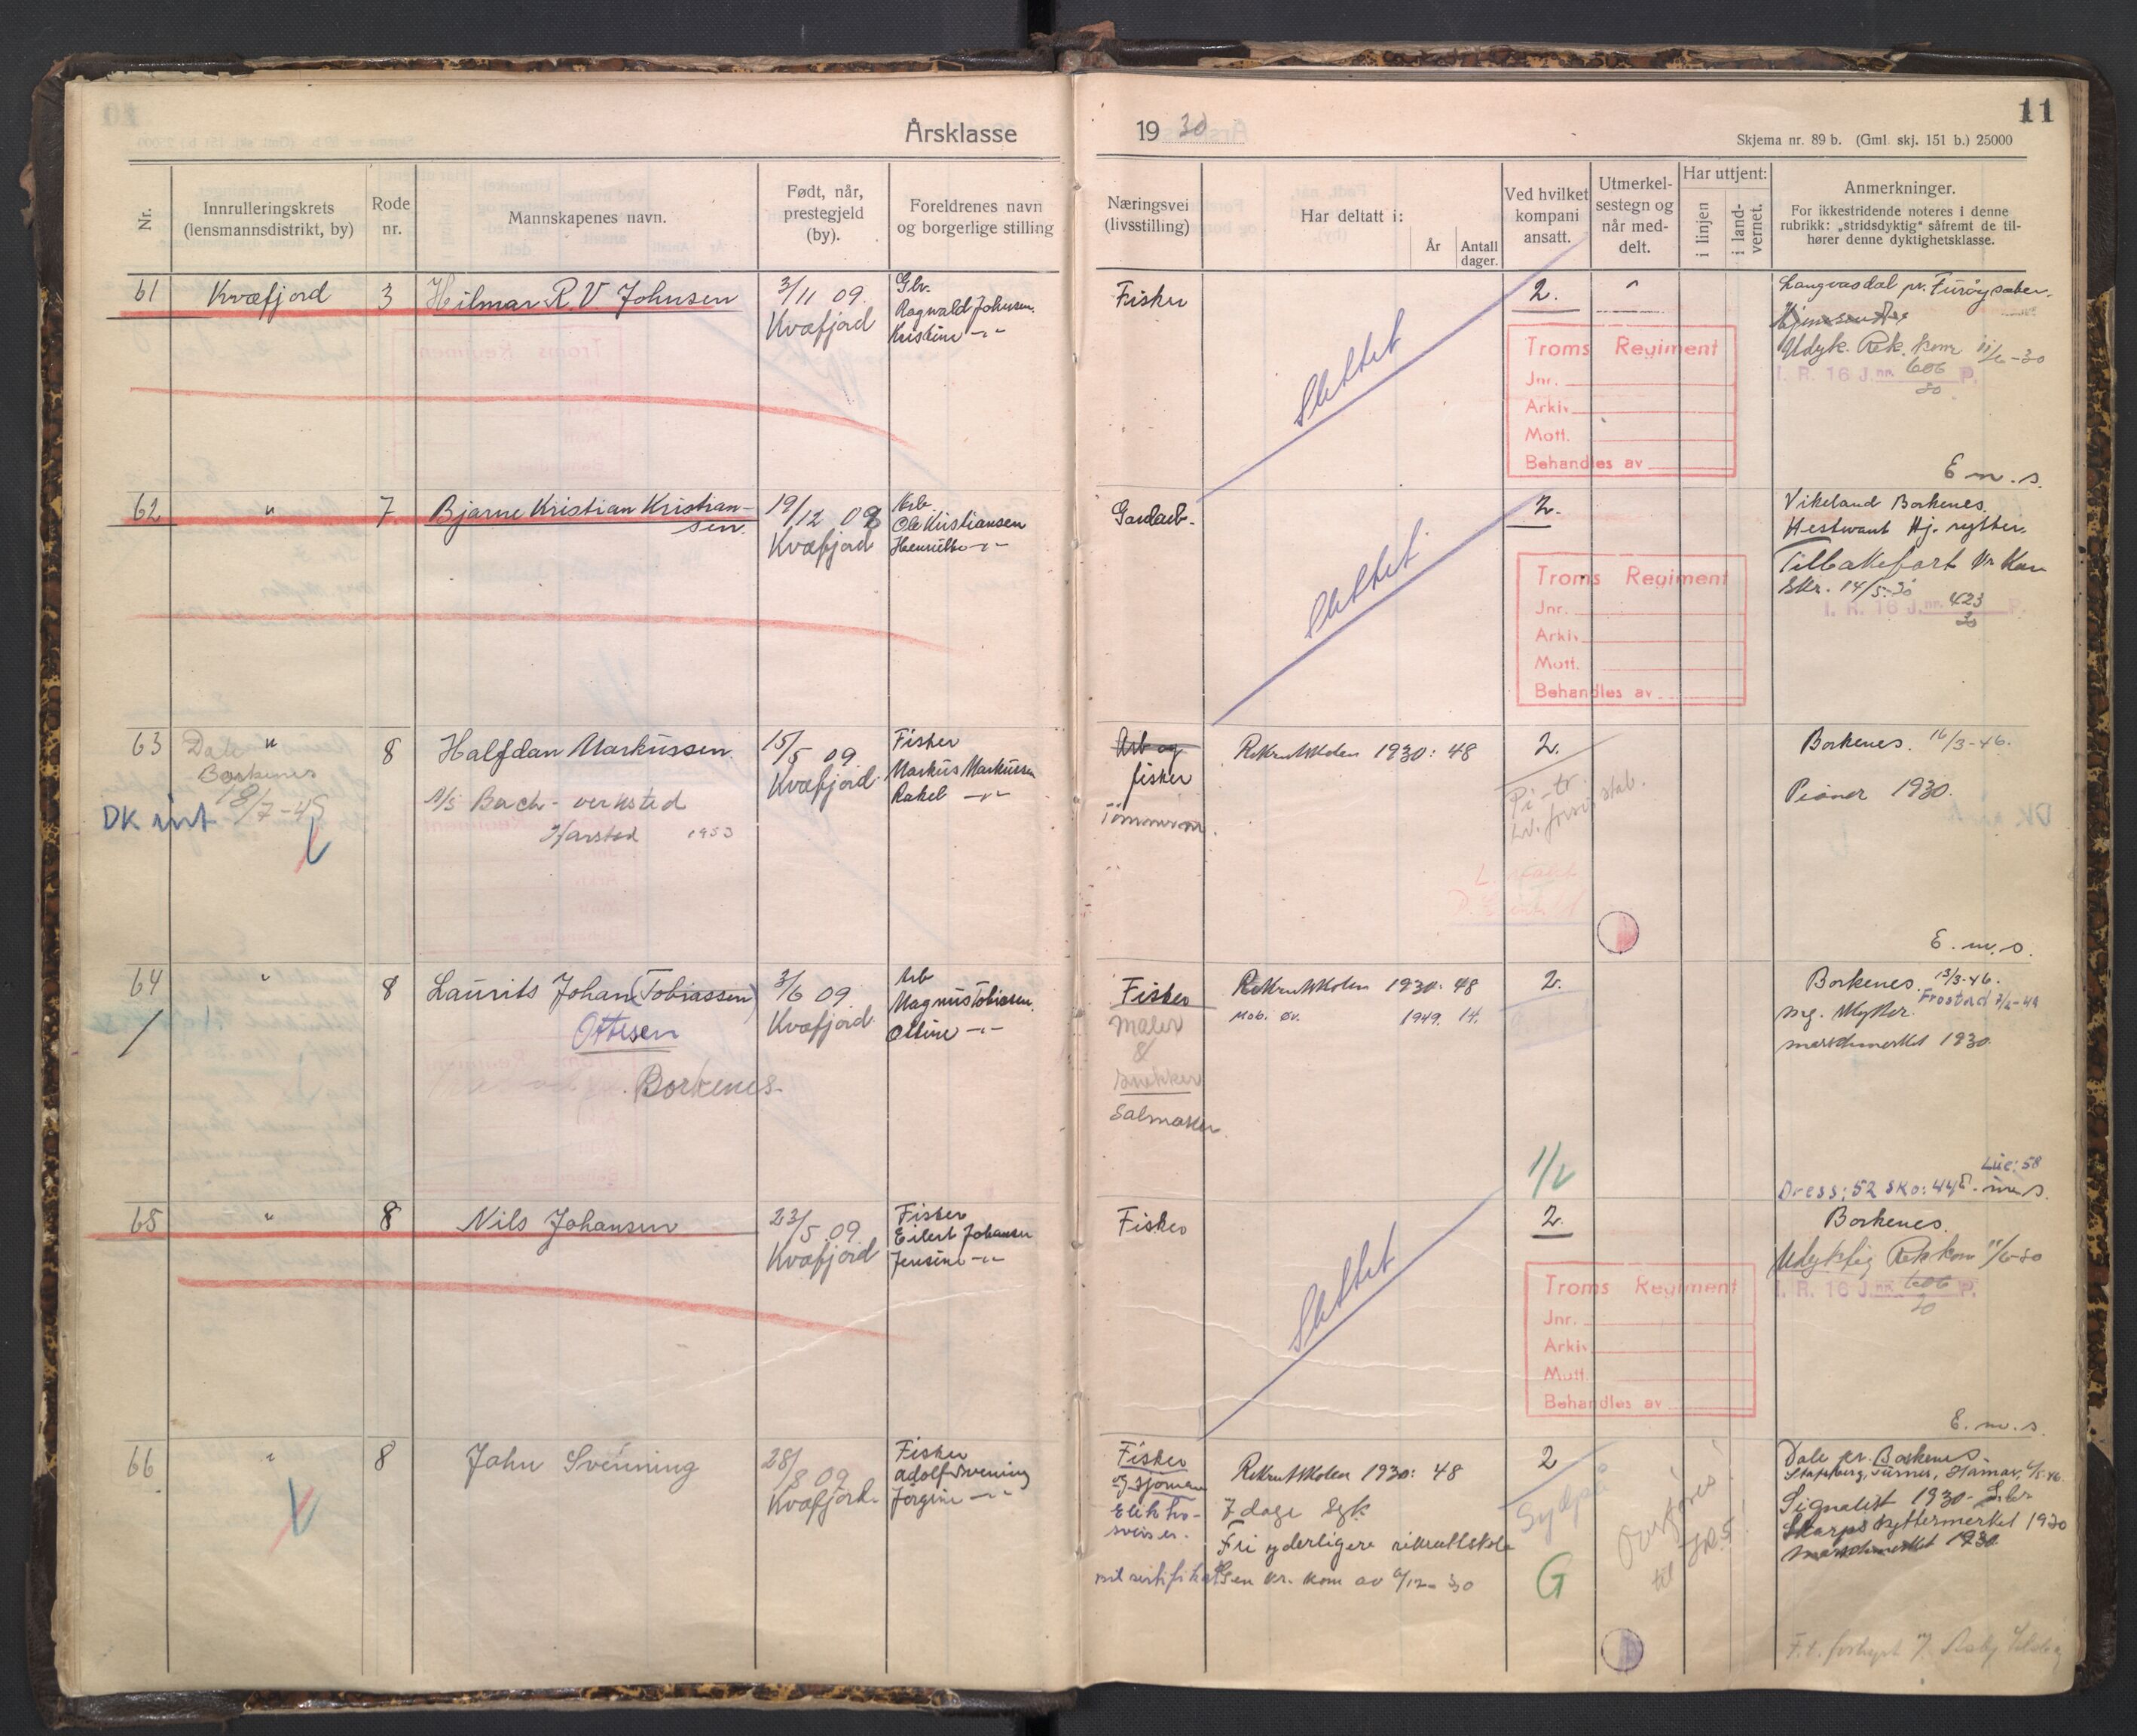 11
Årsklasse 1930
Skjema nr. 89 b. (Gml. skj. 151 b.) 25000
Nr.
Innrulleringskrets
(lensmannsdistrikt, by)
Rode
nr.
Mannskapenes navn.
Født, når,
prestegjeld
(by).
Foreldrenes navn
og borgerlige stilling
Næringsvei
(livsstilling)
Har deltatt i:
År
Antall
dager.
Ved hvilket
kompani
ansatt.
Utmerkel-
sestegn og
når med-
delt.
Har uttjent:
i linjen
i land-
vernet.
Anmerkninger.
For ikkestridende noteres i denne
rubrikk: „stridsdyktig" såfremt de til-
hører denne dyktighetsklasse.
61
Kvæfjord
3
Hilmar R. V. Johnsen
3/11 09.
Kvæfjord
Gbr.
Ragnvald Johnsen.
Kristine -"-
Fisker
Slettet
2.
Troms Regiment
Jnr.
Arkiv
Mott.
Behandles av
Langvasdal pr.
Udyk. Rek. kom 11/6-30
I. R. 16 J.nr. 606 P.
30
E m. s.
62
"
7
Bjarne Kristian Kristian-
sen.
19/12 08
Kvæfjord
Arb.
Ole Kristiansen
-"-
Gardarb.
Slettet
2.
Troms Regiment
Jnr.
Arkiv
Mott.
Behandles av
Vikeland Borkenes.
Hestevant Hj. rytter.
Tilbakeført
Skr. 14/5-30
I. R. 16 J.nr. 423 P.
30
63
"
Dale
Borkenes
18/7-45
DK
8
Halfdan Markussen.
A/S Bach - verksted
Harstad 1953
15/5 09.
Kvæfjord.
Fisker
Markus Markussen
Rakel -"-
Arb og
fisker
Rekruttskolen 1930: 48
2.
Borkenes. 16/3-46.
Pioner 1930.
E. m. s.
64
"
8
Laurits Johan (Tobiassen)
Ottesen
Borkenes.
3/6 09.
Kvæfjord
Arb
Magnus Tobiassen.
Oline -"-
Fisker
Maler
&
Snekker
Salmaker.
Rekruttskolen 1930: 48
Mob. øv. 1949. 14.
2.
Borkenes. 13/3-46.
mg. skytter.
marschmerket 1930.
Lue: 58
Dress: 52 Sko: 44
65
"
8
Nils Johansen
23/5 09.
Kvæfjord
Fisker
Eilert Johansen
Jensine -"-
Fisker
Slettet
2.
Troms Regiment
Jnr.
Arkiv
Mott.
Behandles av
Borkenes.
Udyktig Rek kom 11/6-30
I. R. 16 J.nr. 606 P.
30
E. m. s.
66
"
8
John Svenning
28/8 09
Kvæfjord.
Fisker
Adolf Svenning
Jørgine -"-
Fisker
og sjømann
Elektro-
sveiser.
Rekruttskolen 1930: 48
7 dage syk
Fri yderligere rekruttskole
2
G
Overføres
til IR5!
Dale pr. Borkenes.
Hamar,
Signalist 1930
Skarpskyttermerket 1930
marschmerket 1930